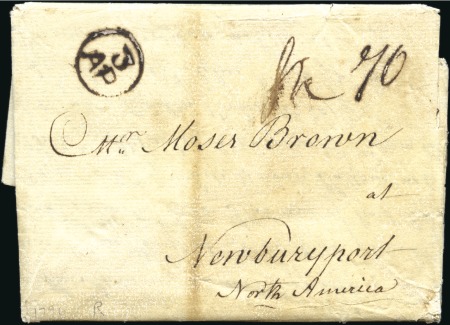 3
AP
70
Mr. Moses Brown
at
Newburyport
North America